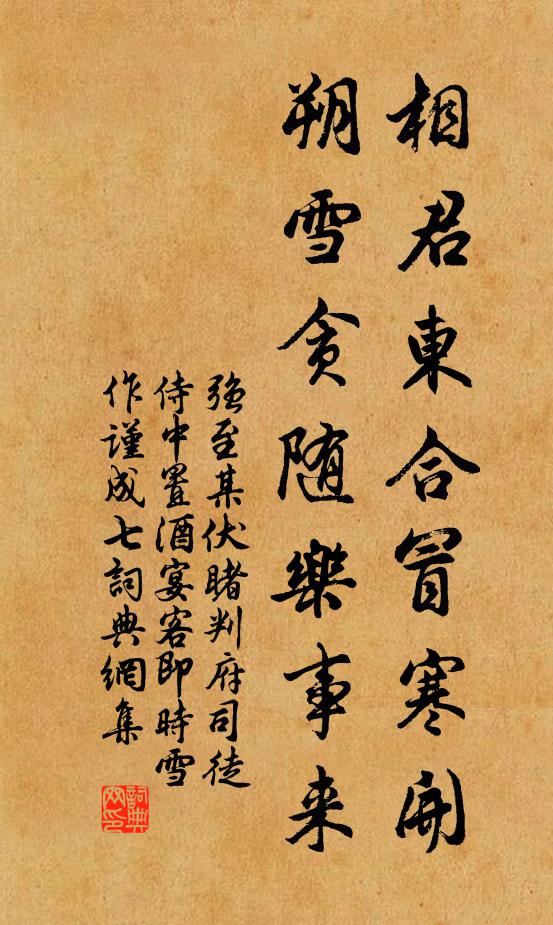 相君東合冒寒開
朔雪貪随樂事来
強至某伏睹判府司徒
侍中置酒宴客即時雪
作謹成七詞典網集
詞典網印